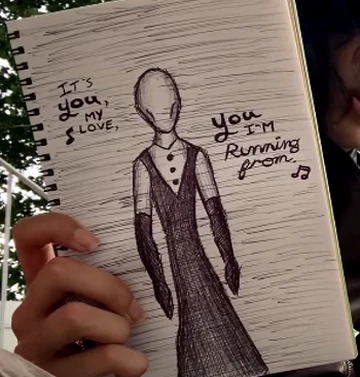 IT'S
YOU,
MY
LOVE,
YOU
I'M
Running
from.